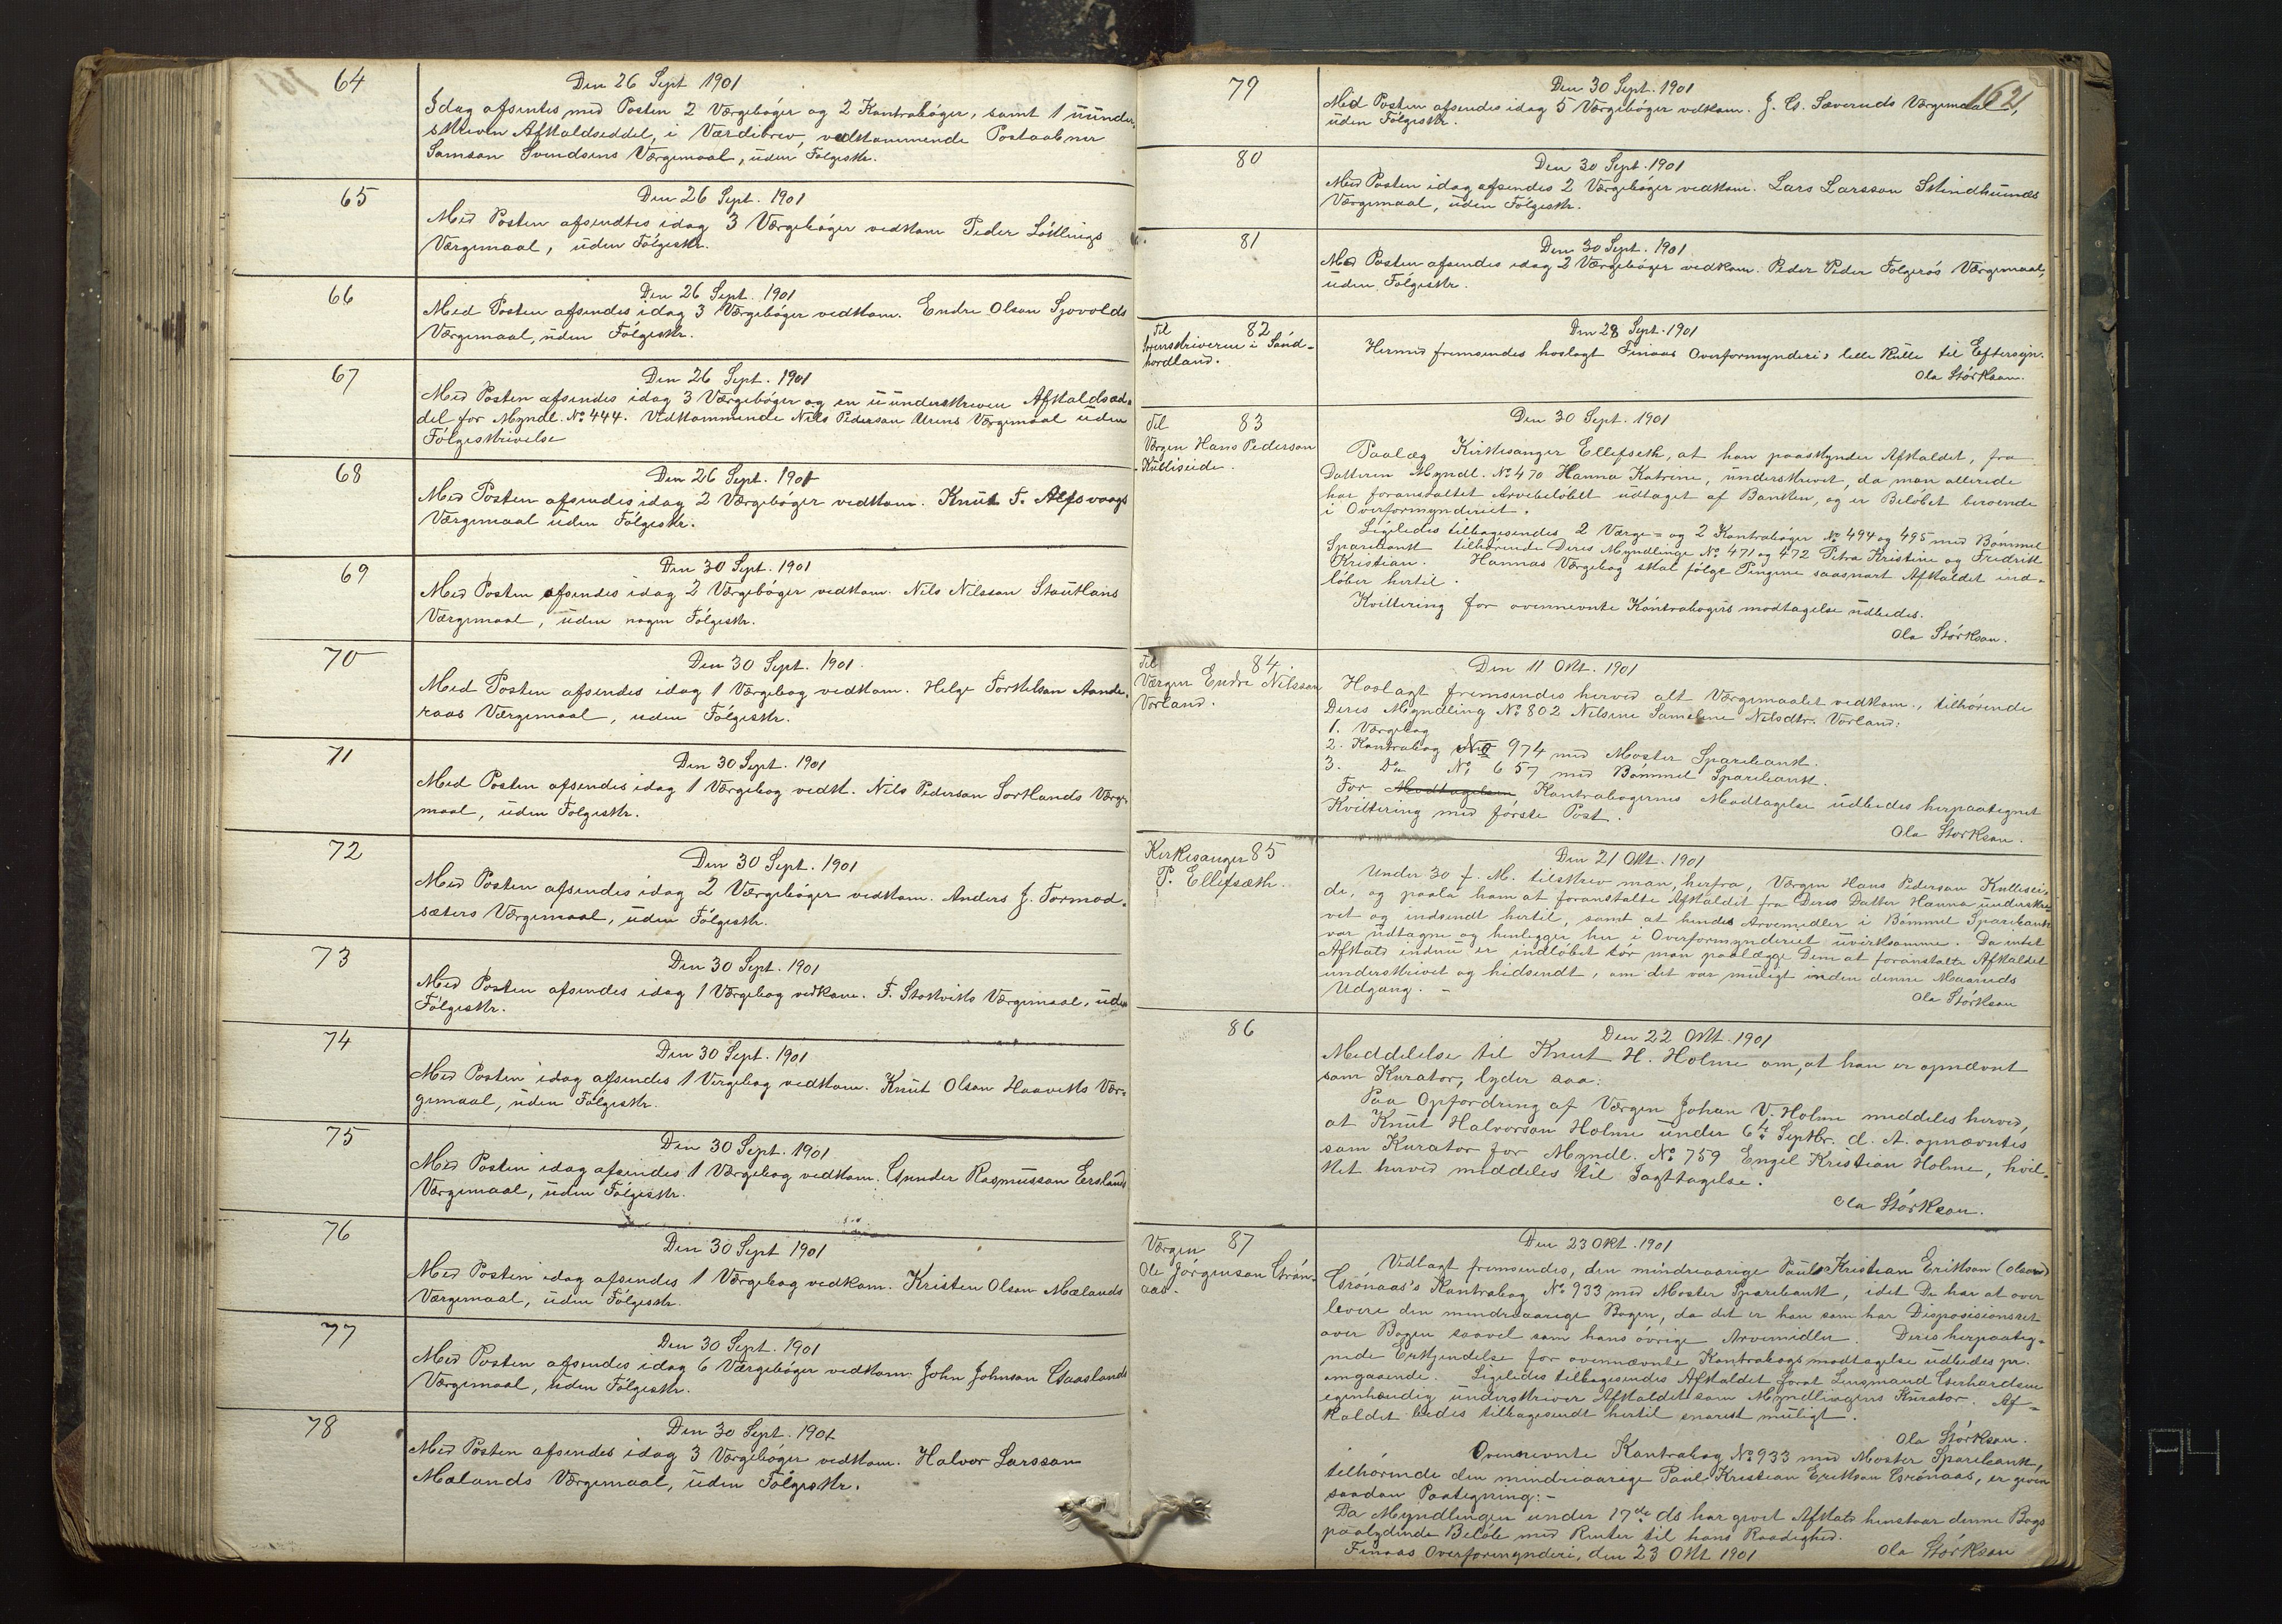 64
Den 26 Sept 1901
Idag afsentes med Posten 2 Værgebøger og 2 Kontrabøger, samt 1 uunder-
skreven Afkaldseddel, i Værdibrev, vedkommende Postaabner
Samson Svendsens Værgemaal, uden Følgeskr.
65
Den 26 Sept. 1901
Med Posten afsendtes idag 3 Værgebøger vedkom Peder Løklings
Værgemaal, uden Følgeskr.
66
Den 26 Sept. 1901
Med Posten afsendes idag 3 Værgebøger vedkom. Endre Olson Sjovolds
Værgemaal, uden Følgeskr.
67
Den 26 Sept. 1901
Med Posten afsendes idag 3 Værgebøger og en uunderskreven Afkaldsed-
del for Myndl. No 444. Vedkommende Nils Pederson Urens Værgemaal uden
Følgeskrivelse
68
Den 26 Sept. 1901
Med Posten afsendes idag 2 Værgebøger vedkom. Knut T. Alfsvaags
Værgemaal uden Følgeskr.
69
Den 30 Sept. 1901
Med Posten afsendes idag 2 Værgebøger vedkom. Nils Nilsson Stautlans
Værgemaal, uden nogen Følgeskr.
70
Den 30 Sept. 1901.
Med Posten afsendes idag 1 Værgebog vedkom. Helge Torkelson Aande-
raas Værgemaal, uden Følgeskr.
71
Den 30 Sept. 1901
Med Posten afsendes idag 1 Værgebog vedk. Nils Pederson Sortlands Værge-
maal, uden Følgeskr.
72
Den 30 Sept. 1901
Med Posten afsendes idag 2 Værgebøger vedkom. Anders J. Tormod-
sæters Værgemaal, uden Følgeskr.
73
Den 30 Sept. 1901
Med Posten afsendes idag 1 Værgebog vedkom. T. Stokviks Værgemaal, uden
Følgeskr.
74
Den 30 Sept. 1901
Med Posten idag afsendes 1 Værgebog vedkom. Knut Olson Haaviks Vær-
gemaal, uden Følgeskr.
75
Den 30 Sept. 1901
Med Posten idag afsendes 1 Værgebog vedkom. Gunder Rasmusson Erslands
Værgemaal, uden Følgeskr.
76
Den 30 Sept 1901
Med Posten idag afsendes 1 Værgebog vedkom. Kristen Olson Mælands
Værgemaal, uden Følgeskr.
77
Den 30 Sept. 1901
Med Posten afsendes idag 6 Værgebøger vedkom. John Johnson Gaaslands
Værgemaal, uden Følgeskr.
78
Den 30 Sept. 1901
Med Posten afsendes idag 3 Værgebøger vedkom. Halvor Larsson
Mælands Værgemaal, uden Følgeskr.
162
79
Den 30 Sept. 1901
Med Posten afsendes idag 5 Værgebøger vedkom. J. G. Sæveruds Værgemaal,
uden Følgeskr.
80
Den 30 Sept. 1901
Med Posten idag afsendes 2 Værgebøger vedkom. Lars Larsson Skindhunds
Værgemaal, uden Følgeskr.
81
Den 30 Sept. 1901
Med Posten afsendes idag 2 Værgebøger vedkom. Peder Peder Folgerøs Værgemaal,
uden Følgeskr.
82
Til
Sorenskriveren i Sønd-
hordland.
Den 28 Sept. 1901
Hermed fremsendes hoslagt Finaas Overformynderi's lille Rulle til Eftersyn.
Ola Størkson.
83
Til
Værgen Hans Pederson
Kulliseide.
Den 30 Sept. 1901
Paalæg Kirkesanger Ellefseth, at han paaskynder Afkaldet, fra
Datteren Myndl. No 470 Hanna Katrine, underskrevet, da man allerede
har foranstaltet Arvebeløbet udtaget af Banken, og er Beløbet beroende
i Overformynderiet.
Ligeledes tilbagesendes 2 Værge- og 2 Kontrabøger No 494 og 495 med Bømmel
Sparebank tilhørende Deres Myndlinge No 471 og 472 Petra Kristine og Fredrik
Kristian. Hannas Værgebog skal følge Pengene saasnart Afkaldet ind-
løber hertil.
Kvittering for ovennevnte Kontrabogers modtagelse udbedes.
Ola Størkson.
84
Til
Værgen Endre Nilsson
Vorland.
Den 11 Okt. 1901
Hoslagt fremsendes herved alt Værgemaalet vedkom., tilhørende
Deres Myndling No 802 Nilsine Sameline Nilsdtr. Vorland:
1. Værgebog
2. Kontrabog No 974 med Moster Sparebank.
3. Do No 657 med Bømmel Sparebank.
For Modtagelsen Kontrabogernes Modtagelse udbedes herpaategnet
Kvittering med første Post.
Ola Størkson.
85
Kirkesanger
P. Ellefsæth.
Den 21 Okt. 1901
Under 30 f. M. tilskrev man, herfra, Værgen Hans Pederson Kullisei-
de, og paala ham at foranstalte Afkaldet fra Deres Datter Hanna underskre-
vet og indsendt hertil, samt at hendes Arvemidler i Bømmel Sparebank
var udtagne og henligger her i Overformynderiet uvirksomme. Da intet
Afkald endnu er indløbet tør man paalægge Dem at foranstalte Afkaldet
underskrevet og hidsendt, om det var muligt inden denne Maaneds
Udgang.
Ola Størkson
86
Den 22 Okt. 1901
Meddelelse til Knut H. Holme om, at han er opnævnt
som Kurator, lyder saa:
Paa Opfordring af Værgen Johan V. Holme meddeles herved,
at Knut Halvorson Holme under 6te Septbr. d. A. opnævntes
som Kurator for Myndl. No 759 Engel Kristian Holme, hvil-
ket herved meddeles til Iagttagelse.
Ola Størkson.
87
Værgen
Ole Jørgenson Grøn-
aas.
Den 23 Okt. 1901
Vedlagt fremsendes, den mindreaarige Paul Kristian Erikson (Olson)
Grønaas's Kontrabog No 933 med Moster Sparebank, idet De har at over
levere den mindreaarige Bogen, da det er han som har Disposisionsret
over Bogen saavel som hans øvrige Arvemidler. Deres herpaateg-
nede Erkjendelse for ovennævnte Kontrabogs modtagelse udbedes pr.
omgaaende. Ligeledes tilbagesendes Afkaldet forat Lensmand Gerhardsen
egenhændig underskriver Afkaldet som Myndlingens Kurator. Af-
kaldet bedes tilbagesendt hertil snarest muligt.
Ola Størkson.
Ovennevnte Kontrabog No 933 med Moster Sparebank,
tilhørende den mindreaarige Paul Kristian Erikson Grønaas, er given
saadan Paategning:-
Da Myndlingen under 17de ds har givet Afkald henstaar denne Bogs
paalydende Beløb med Renter til hans Raadighed.
Finaas Overformynderi, den 23 Okt 1901
Ola Størkson